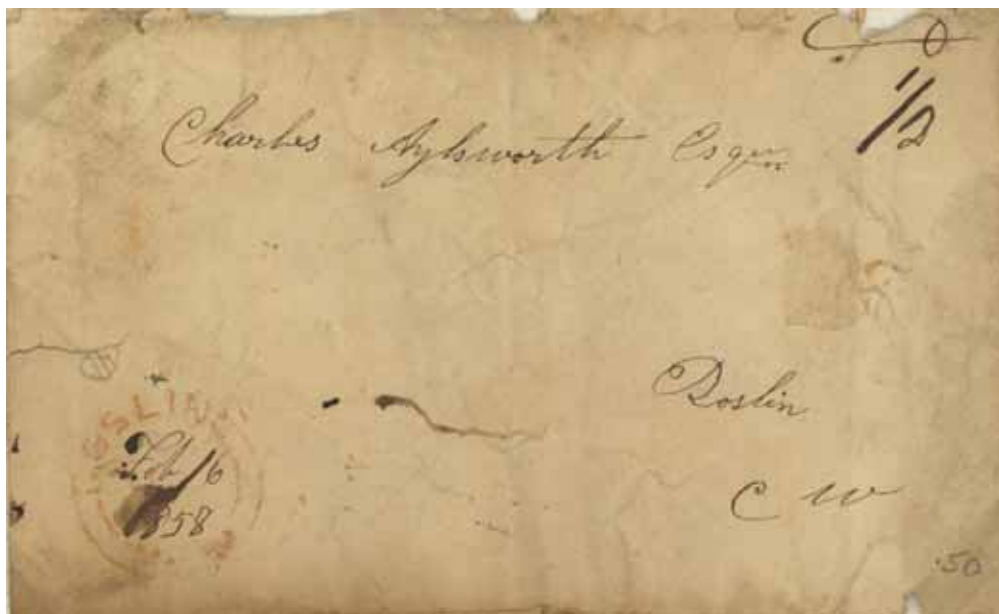 1/2
Charles Aylsworth Esqr
Roslin
C W
Feb 16
1858
.50